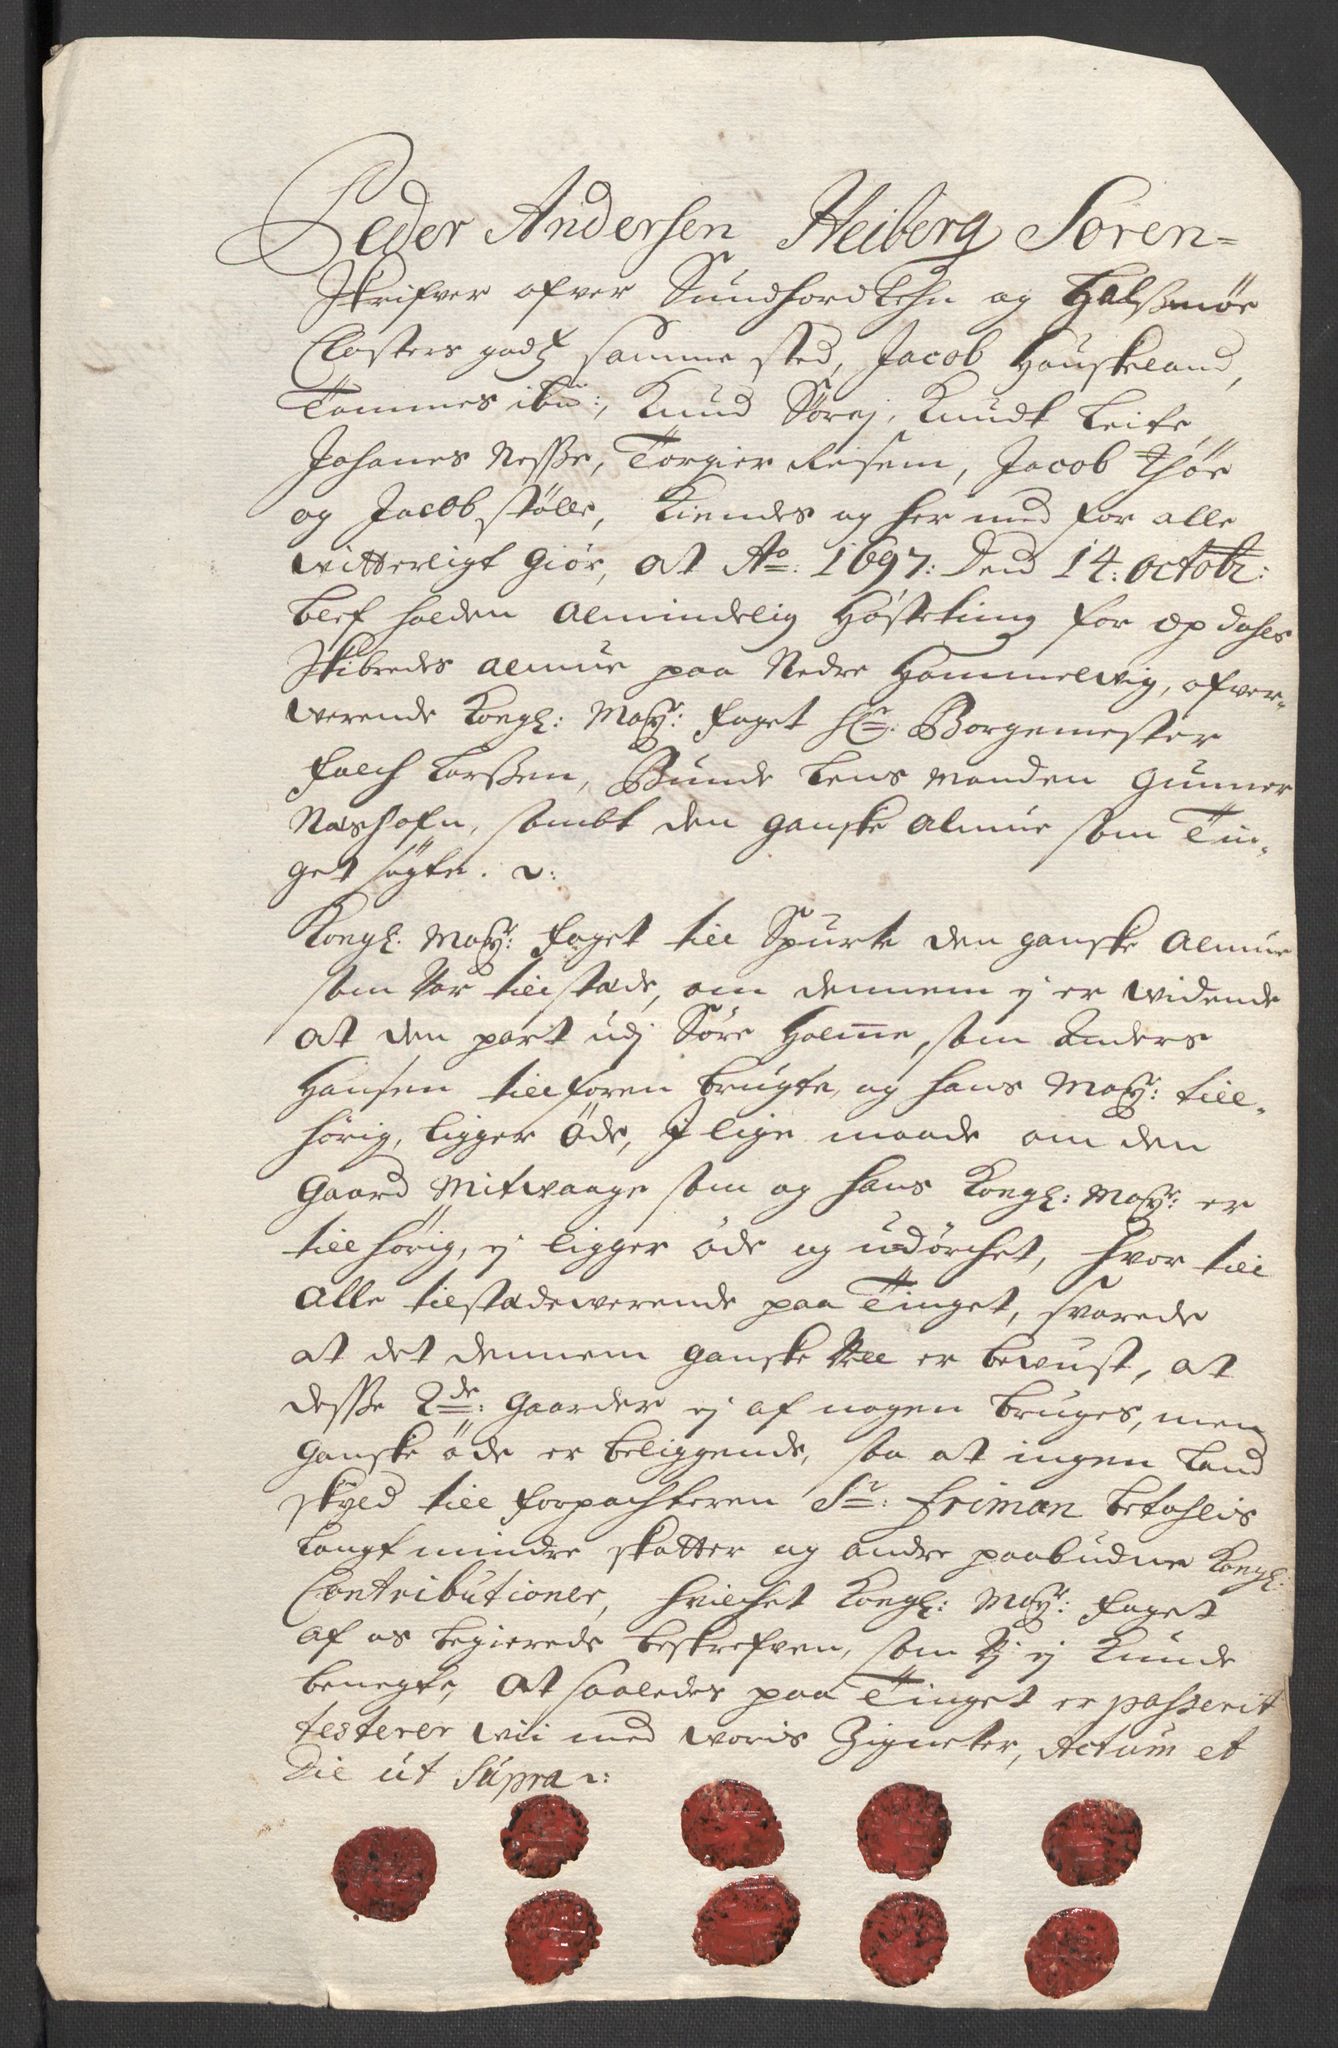 Peder Andersen Heiberg Soren-
skrifver ofver Sundhordlehn og Halsnöe
Closters godtz samme sted, Jacob Houskeland,
Tommes ibm:, Knud Sörej, Knudt Leite,
Johanes Nesse, Torgier Reisem, Jacob Thöe
og Jacob Stölle, kiendes og her med for alle
witterligt giör, at Ao: 1697: Dend 14: octobr:
blef holden almindelig Hösteting for opdahls
skibredes almue paa Nedre Hammelwig, ofver-
werende Kongl: Mayts: foget Hr: Borgemester
Falch Larssen, Bunde Lens manden Gunner
Næshafn, sambt den ganske almue som Tin-
get sögte. v:
Kongl: Mayts: foget till Spurte den ganske Almue
som Var till stæde, om dennem ej er widende
at den part udj Söre Holme, som Anders
Hansen till foren brugte, og hans Mayts: till-
hörig, ligger öde, J lige maade om den
Gaard Mitwaage som og hans Kongl: Mayts: er
till hörig, ej ligger öde og udörchet, hvor till
Alle tilstædewerende paa Tinget, svarede
at det dennem ganske Vell er bewust, at
desse 2de: Gaarder ej af nogen bruges, men
ganske öde er beliggende, saa at ingen Land
skyld till forpachteren Sr: Friman betahlis
langt mindre skatter og andre paabudne Kongl:
Contributioner, hvilchet Kongl: Mayts: foget
af os begierede beskrefven, som Vj ej kunde
benegte, At saaledes paa Tinget er passerit
testerer wii med woris Zigneter, Actum et
Die ut Supra v: